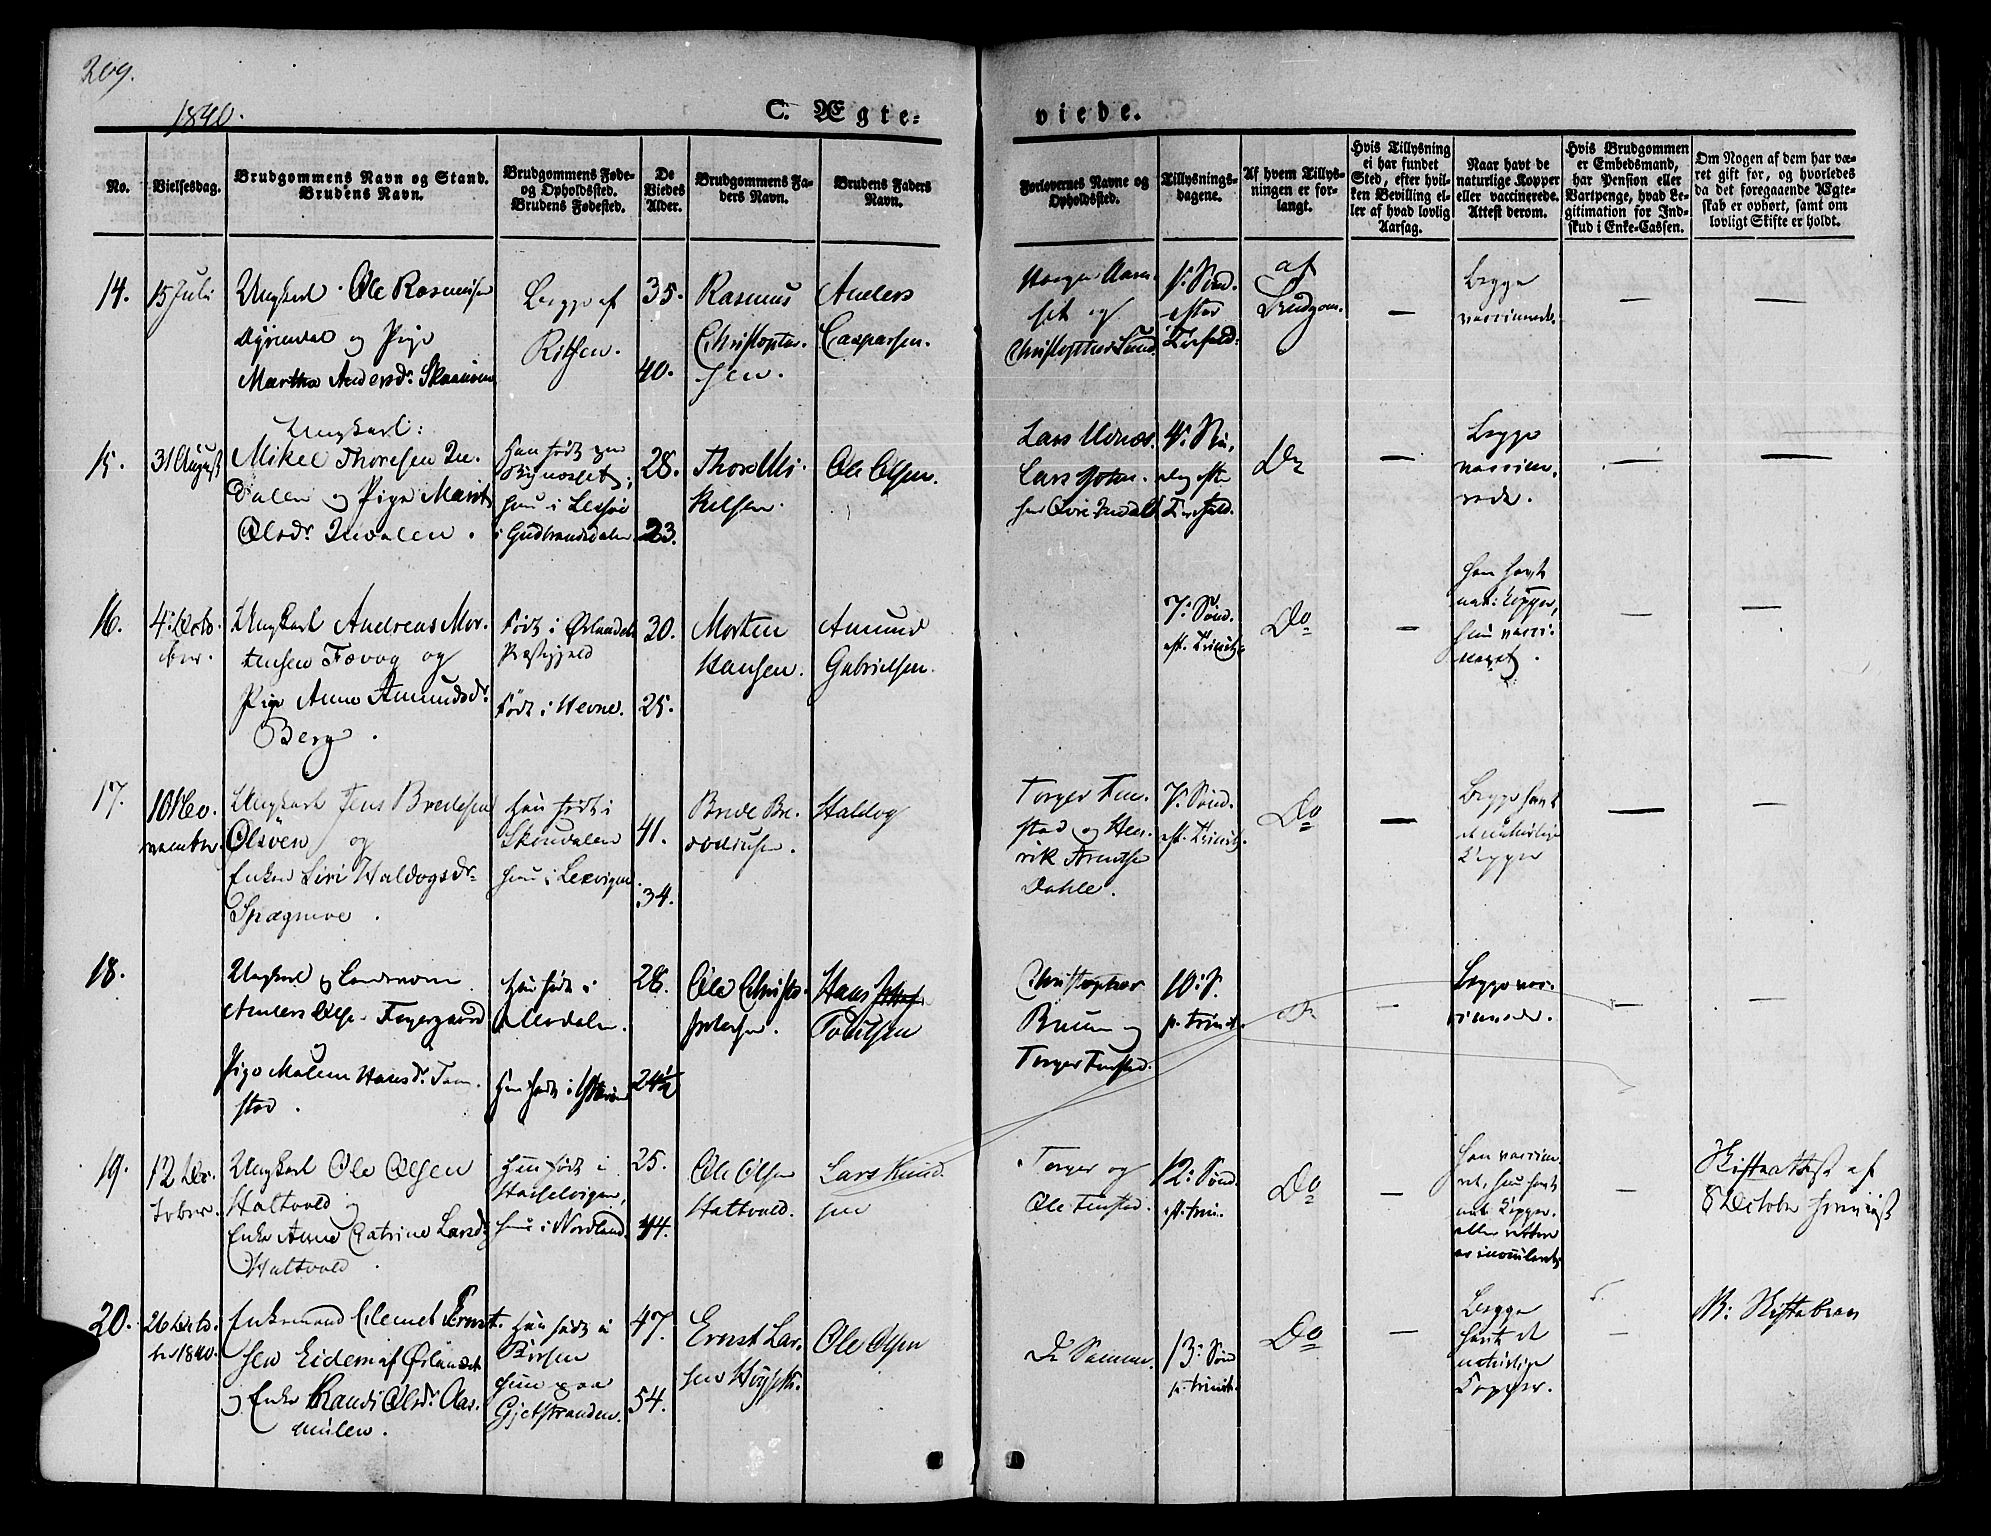 209.
1840.
C. Ægte-
viede.
No.
Vielsesdag.
Brudgommens Navn og Stand.
Brudens Navn.
Brudgommens Føde-
og Opholdssted.
Brudens Fødested.
De
Viedes
Alder.
Brudgommens Fa-
ders Navn.
Brudens Faders
Navn.
Forlovernes Navne og
Opholdssted.
Tillysnings-
dagene.
Af hvem Tillys-
ningen er for-
langt.
Hvis Tillysning
ei har fundet
Sted, efter hvil-
ken Bevilling el-
ler af hvad lovlig
Aarsag.
Naar havt de
naturlige Kopper
eller vaccinerede.
Attest derom.
Hvis Brudgommen
er Embedsmand,
har Pension eller
Vartpenge, hvad Le-
gitimation for Ind-
skud i Enke-Cassen.
Om Nogen af dem har væ-
ret gift for, og hvorledes
da det foregaaende Ægte-
skab er ophørt, samt om
lovligt Skifte er holdt.
14.
15 Juli
Ungkarl Ole Rasmusen
og Pige
Martha Andersdr
Begge af
Ritsen.
35.
40.
Rasmus
Christopher-
sen.
Anders
Casparsen.
set og
Christopher
1: Sønd.
efter
af
Brudgom.
Begge
vaccinerede
15.
31 August
Ungkarl:
Mikel Thoresen In-
dalen og Pige Marit
Olsdr Indalen.
Han født paa
Bynesset;
hun i Lessøe
i Gudbrandsdalen
28.
23.
Thore Mi-
kelsen.
Ole Olsen.
Lars
Lars John-
sen
4: Søn-
dag efter
Do
Begge
vaccine-
rede.
16.
4: Octo-
ber.
Ungkarl Andreas Mor-
tensen Fævog og
Pige Anne Amundsdr
Berg.
Født i Ørlandets
Præstegjeld
Født i Hevne.
30.
25.
Morten
Hansen.
Amund
Gabrielsen.
7: Sønd.
eft. Trinit.
Do
Han havt
nat: Kopper,
hun vacci-
neret.
17.
10 No-
vember.
Ungkarl Jens Bredesen
Olsøen og
Enken Siri Haldogsdr
Han født i
Skoudalen
hun i Lexvigen
41.
34.
Brede Bre-
Haldog
Torger Fen-
stad og Hen-
rik Arentsen
Dahle.
7: Sønd.
eft. Trinit.
Do
Begge havt
d naturlige
Kopper
18.
Ungkarl og Landeværn
Anders Ols. Fagergaard
og
Pige Malene Hansdr Fen-
stad.
Han født i
Hun født i
28.
24½
Ole Christo-
phersen.
Hans
Poulsen
Christopher
Bruun og
Torger Fenstad.
10: S.
p. Trinit.
Do
Begge vac-
cinerede.
19.
12 Oc-
tober.
Ungkarl Ole Olsen
Haltvold og
Enke Anne Catrine Larsdr
Haltvold.
Han født i
Hasselvigen,
hun i Nordland.
25.
44.
Ole Olsen
Haltvold.
Lars Knud-
sen
Torger og
Ole Fenstad.
12: Sønd.
eft. Trin.
Do
Han vaccine-
ret, hun havt
nat. Kopper,
eller rettere
er inoculeret.
Skifteattest af
8 October
20.
26 Octo-
ber 1840.
Enkemand Clemet Ernst-
sen Eidem af Ørlandet
og Enke Randi Olsdr Aas-
mulen.
Han født i
Børsen
hun paa
Gjetstranden.
47.
54.
Ernst Lar-
sen
Ole Olsen
De Samme.
13: Sønd
p. Trinit.
Do
Begge
havt de
naturlige
Kopper.